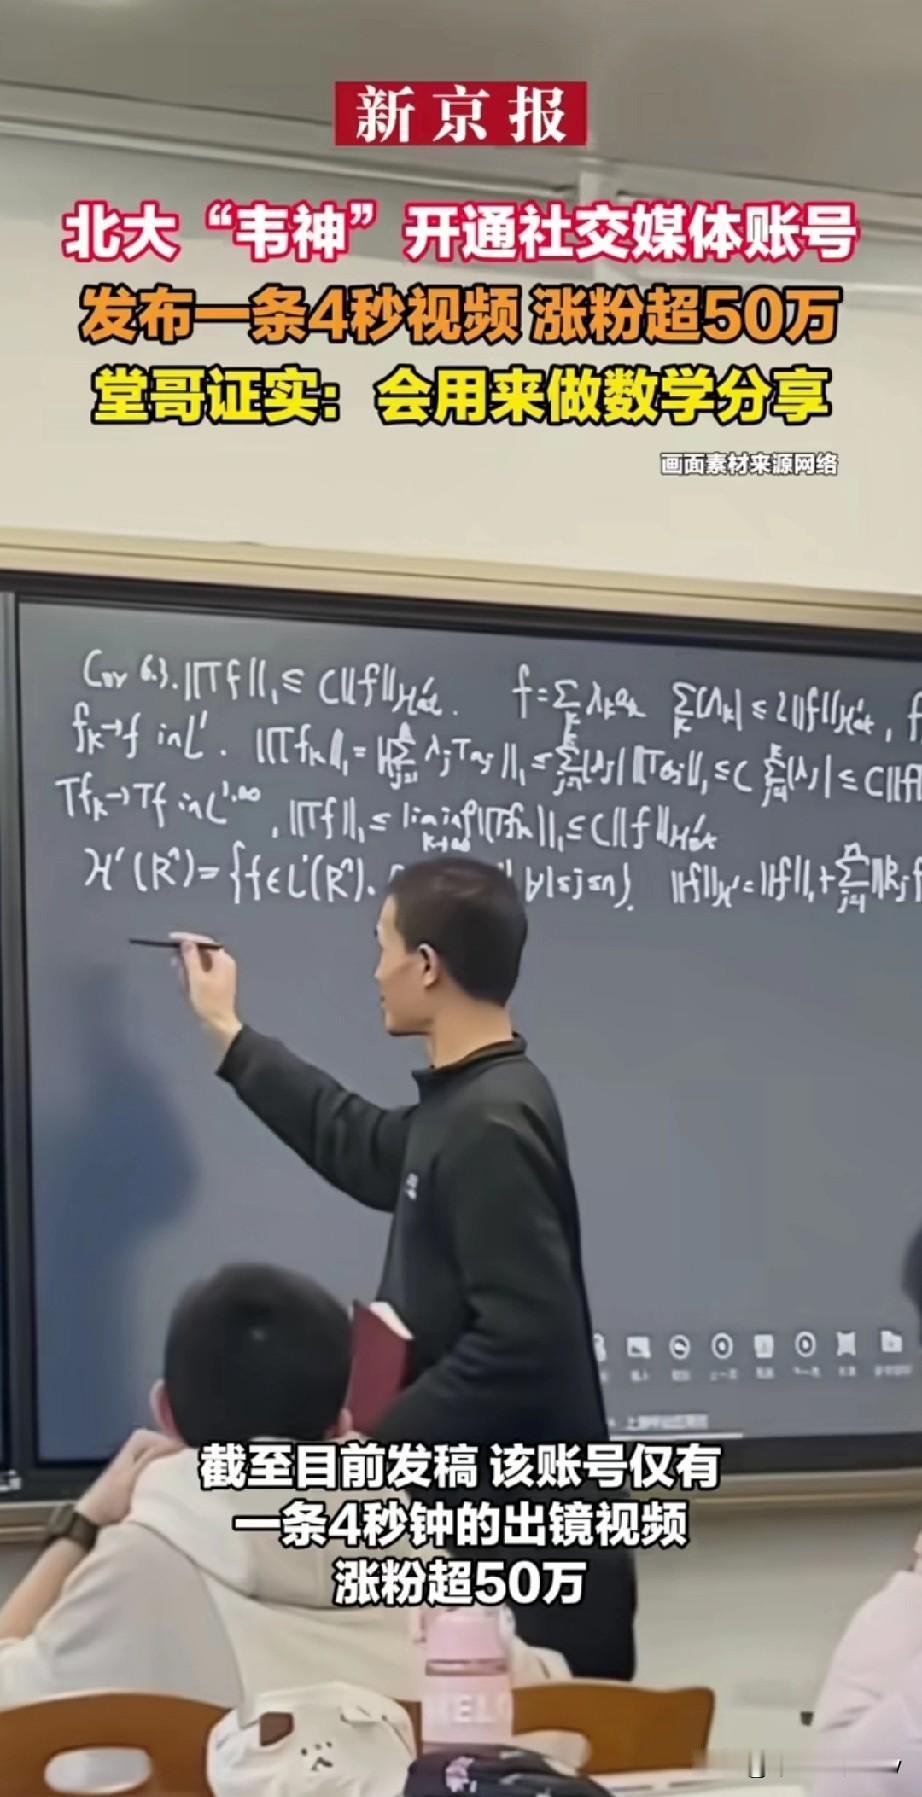 新京报
北大“韦神”开通社交媒体账号
发布一条4秒视频 涨粉超50万
堂哥证实：会用来做数学分享
画面素材来源网络
Cor 6.3. ||Tf||₁ ≤ C||f||H¹at. f = Σk λk ak Σk |λk| ≤ 2||f||H¹at, f
fk→f in L¹. ||Tfk||₁ = ||Σj=1 λj Taj||₁ ≤ Σj=1 |λj| ||Taj||₁ ≤ C Σj=1 |λj| ≤ C||f
Tfk→Tf in L¹,∞, ||Tf||₁ ≤ lim inf k→∞ ||Tfk||₁ ≤ C||f||H¹at
H¹(Rⁿ) = {f∈L¹(Rⁿ). ∀1≤j≤n}. ||f||H¹ = ||f||₁ + Σj=1ⁿ ||Rjf
截至目前发稿 该账号仅有
一条4秒钟的出镜视频
涨粉超50万